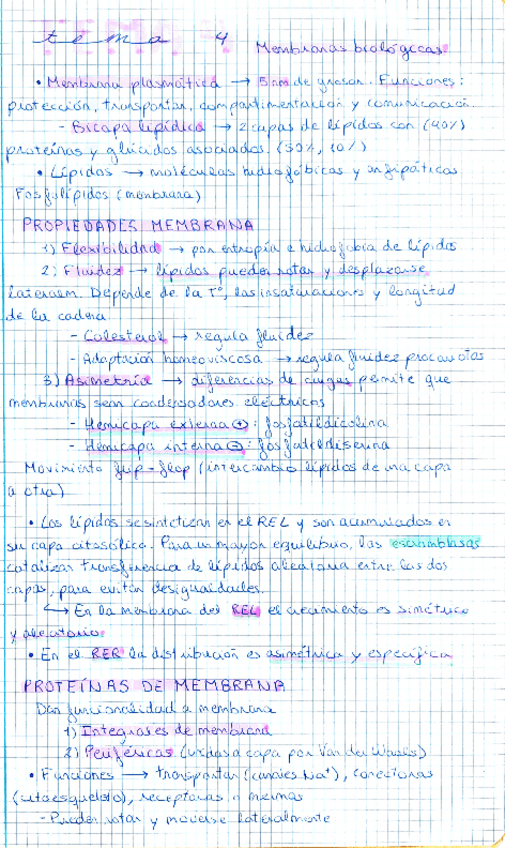 tema 4 Membranas biológicas
• Membrana plasmática → 5 nm de grosor. Funciones:
protección, transportar, compartimentación y comunicación
- Bicapa lipídica → 2 capas de lípidos con (40%)
proteínas y glúcidos asociados. (50%, 10%)
• Lípidos → moléculas hidrofóbicas y anfipáticas
Fosfolípidos (membrana)
PROPIEDADES MEMBRANA
1) Flexibilidad → por entropía e hidrofobia de lípidos
2) Fluidez → lípidos pueden rotar y desplazarse
lateralm. Depende de la Tº, las insaturaciones y longitud
de la cadena
- Colesterol → regula fluidez
- Adaptación homeoviscosa → regula fluidez procariotas
3) Asimetría → diferencias de cargas permite que
membranas sean condensadores eléctricos
- Hemicapa externa ⊕: fosfatidilcolina
- Hemicapa interna ⊖: fosfatidilserina
Movimiento flip-flop (intercambio lípidos de una capa
a otra)
• Los lípidos se sintetizan en el REL y son acumulados en
su capa citosólica. Para un mayor equilibrio, las escramblasas
catalizan transferencia de lípidos aleatoria entre las dos
capas, para evitar desigualdades.
↳ En la membrana del REL el crecimiento es simétrico
y aleatorio
• En el RER la distribución es asimétrica y específica
PROTEÍNAS DE MEMBRANA
Dan funcionalidad a membrana
1) Integrales de membrana
2) Periféricas (unidas a capa por Van der Waals)
• Funciones → transportar (canales Na⁺), conectoras
(citoesqueleto), receptoras o enzimas
- Pueden rotar y moverse lateralmente